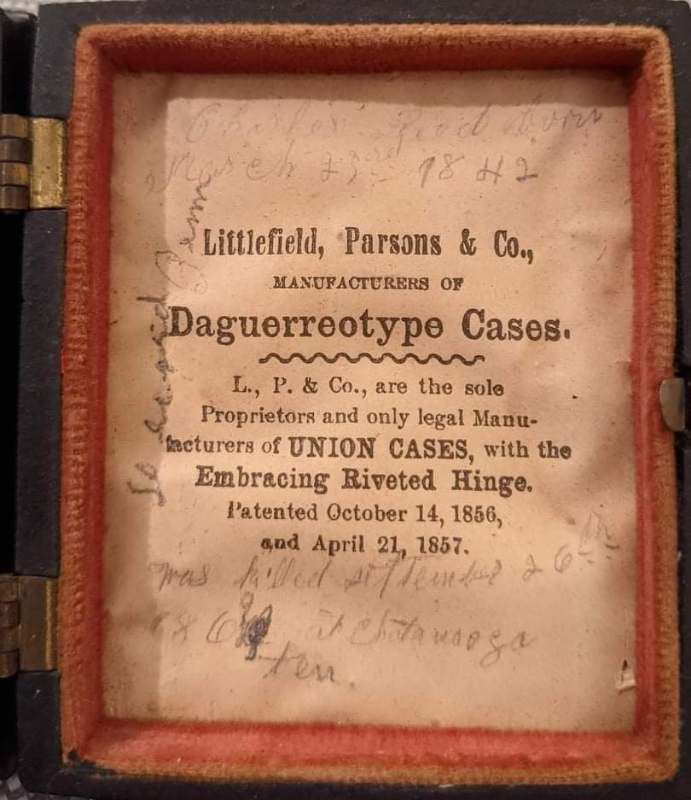 Charles Reed born
March 23rd 1842
Littlefield, Parsons & Co.,
MANUFACTURERS OF
Daguerreotype Cases.
L., P. & Co., are the sole
Proprietors and only legal Manu-
facturers of UNION CASES, with the
Embracing Riveted Hinge.
Patented October 14, 1856,
and April 21, 1857.
was killed september 26th
186 at Chatanooga
Ten.